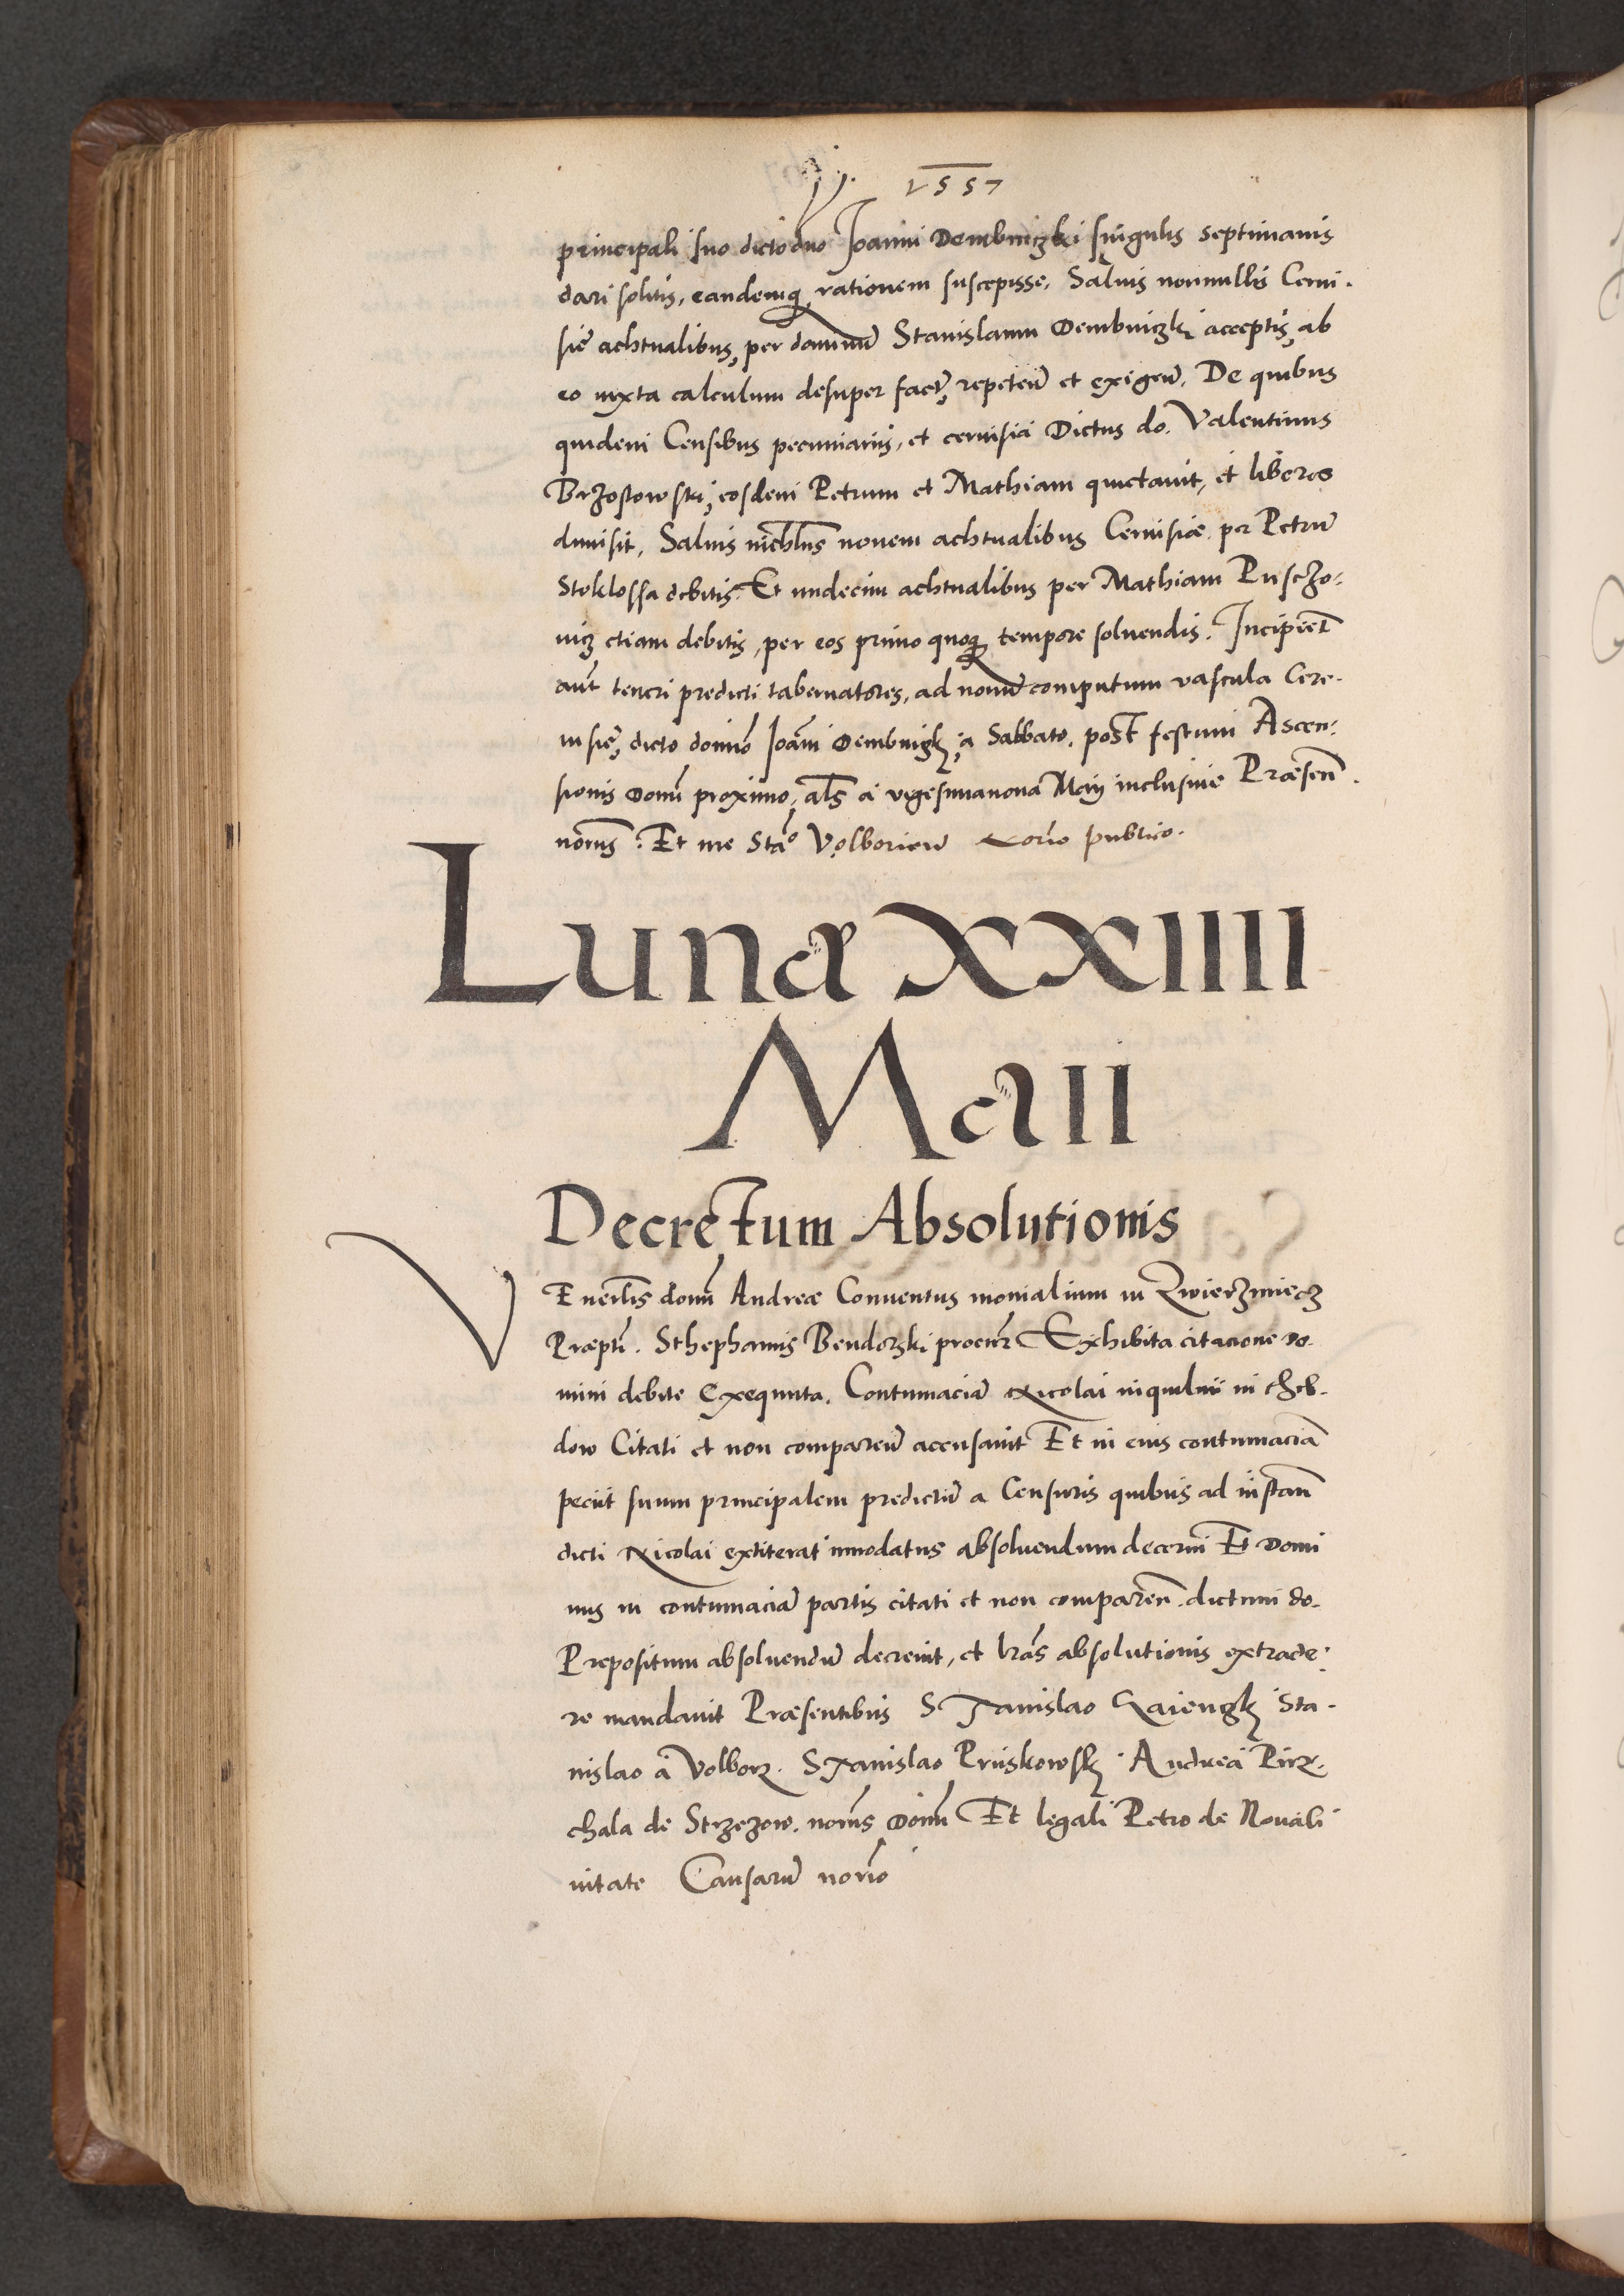 1557
principali suo dicto dno Joanni Dembniczki singulis septimanis
dari solitis, eandemq rationem suscepisse, Saluis nonnullis Cerui.
sie achtualibus, per dominu Stanislaum Dembniczki acceptis, ab
eo iuxta calculum desuper fact, repeten et exigen. De quibus
quidem Censibus pecuniariis, et ceruisia Dictus do. Valentinus
Brzostowski, eosdem Petrum et Mathiam quietauit, et liberos
dimisit, Saluis nichlus nouem achtualibus Ceruisiæ per Petru
Stoklossa debitis. Et undecim achtualibus per Mathiam Pusczo-
wicz etiam debitis, per eos primo quoq tempore soluendis. Incipient
aut teneri predicti tabernatores, ad nouu computum vascula Cere-
uisie, dicto domino Joani Dembnigk, a Sabbato, post festum Ascen-
sionis Domi proximo, als a vigesimanona Maij inclusiue Præsen.
noriis. Et me Stao Volborien Norio publico.
Lunæ XXIIII
Maii
Decretum Absolutionis
VEnerlis domi Andreæ Conuentus monialium in Zwierziniecz
Præpti. Sthephanus Bendorzki procur Exhibita citacione Do-
mini debite Exequuta. Contumaciam Nicolai inquilini in
Citati et non comparen accusauit Et in eius contumacia
peciit suum principalem predictu a Censuris quibus ad instan
dicti Nicolai extiterat innodatus absoluendum decerni Et Domi
nus in contumacia partis citati et non comparen. dictum do.
Prepositum absoluendu decreuit, et lras absolutionis extrade-
re mandauit Præsentibus Stanislao Sta-
nislao a Volborz. Stanislao Pruskowsk Andrea Pirz-
chala de Strzezow. noriis Domi Et legali Petro de Nouaci
uitate Causaru norio